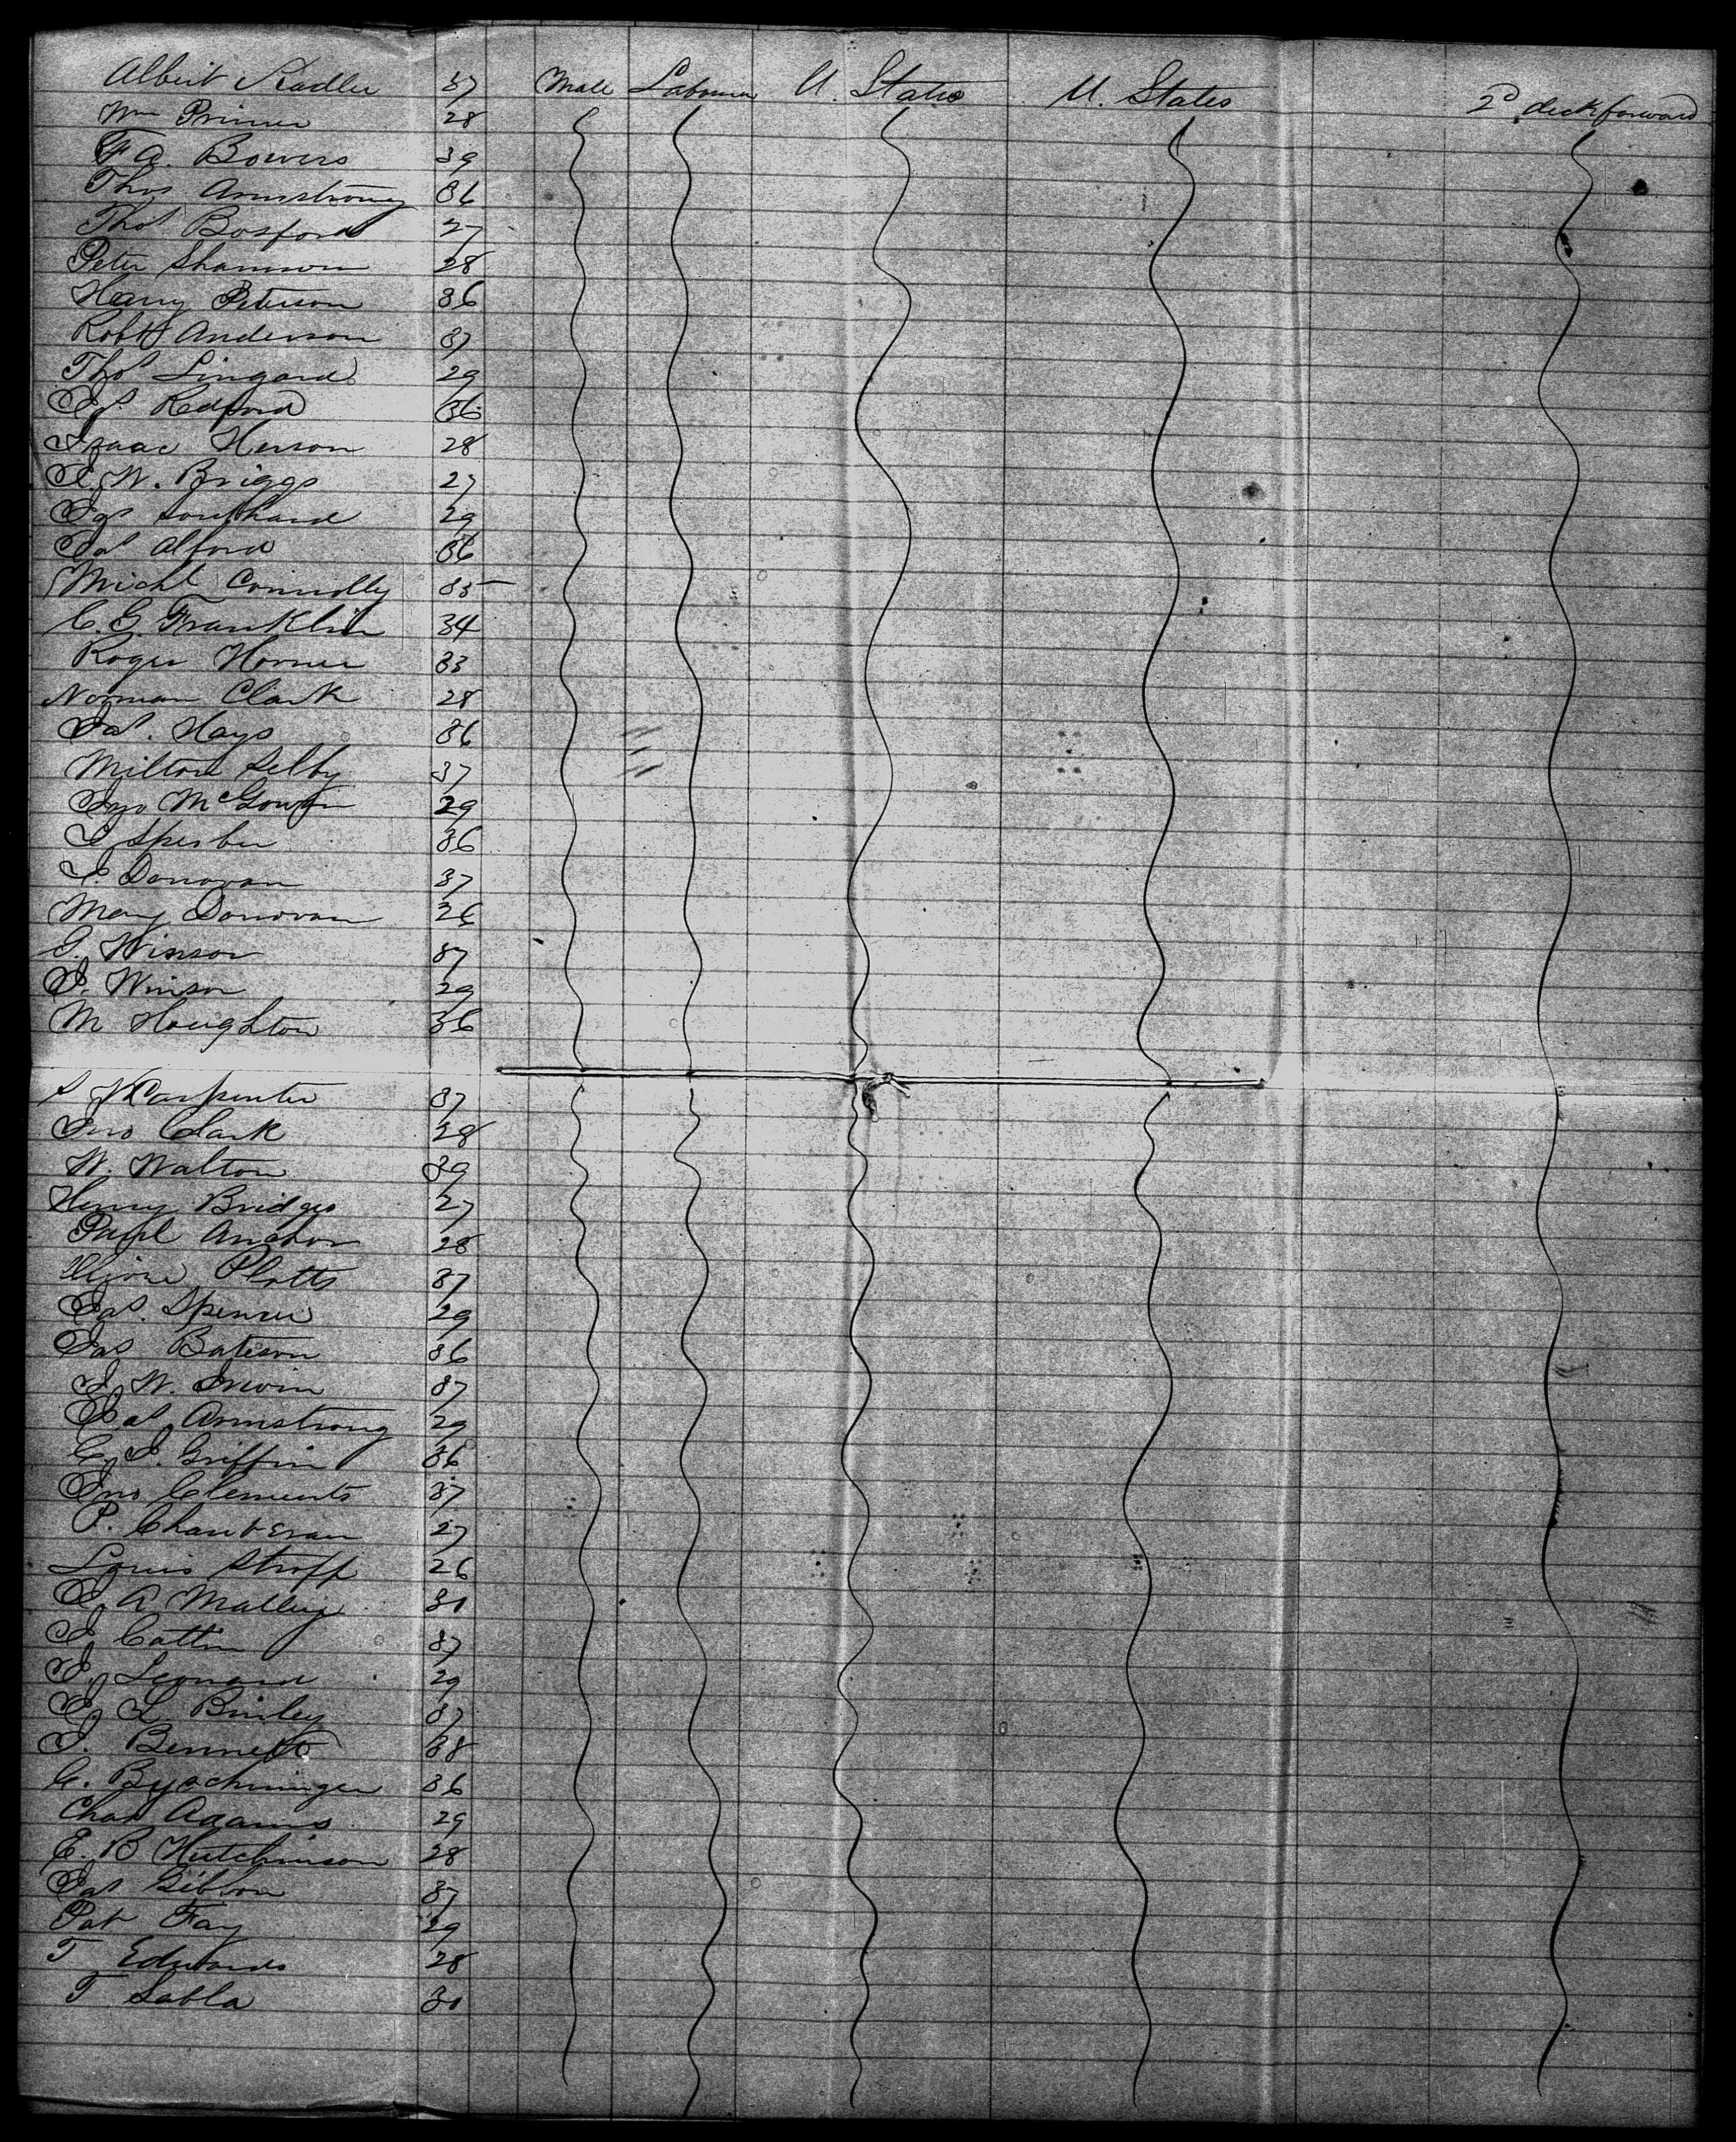 Albert Sadler 37 Male Labourer U. States U. States 2d deck forward
Wm Primer 28
F A. Bowers 39
Thos Armstrong 36
Thos Bosford 27
Peter Shannon 28
Harry Peterson 36
Robt Anderson 37
Thos Lingard 29
Jas Redford 36
Isaac Herson 28
J. W. Briggs 27
Jas Southard 29
Jas Alford 36
Michl Connolly 35
C. G. Franklin 34
Roger Horner 33
Norman Clark 28
Jas. Hays 36
Milton Selby 37
Jno McGowan 29
J Sperber 36
J. Donovan 37
Mary Donovan 26
J. Winson 37
J. Winson 29
M Houghton 36
S Carpenter 37
Jno Clark 28
W. Walton 39
Henry Bridges 27
Paul Anchor 28
Plotts 37
Jas. Spencer 29
Jas Bateson 36
J. W. Irwin 37
Jas Armstrong 29
C. J. Griffin 36
Jno Clements 37
P. 27
Louis Stropp 26
J. A Mallery 30
J. Cattin 37
J. Leonard 29
J. L. Binley 37
J. Bennett 38
C. 36
Chas Adams 29
E. B Hutchinson 28
Jas Gibson 37
Pat Fay 29
T Edwards 28
T Sabla 30